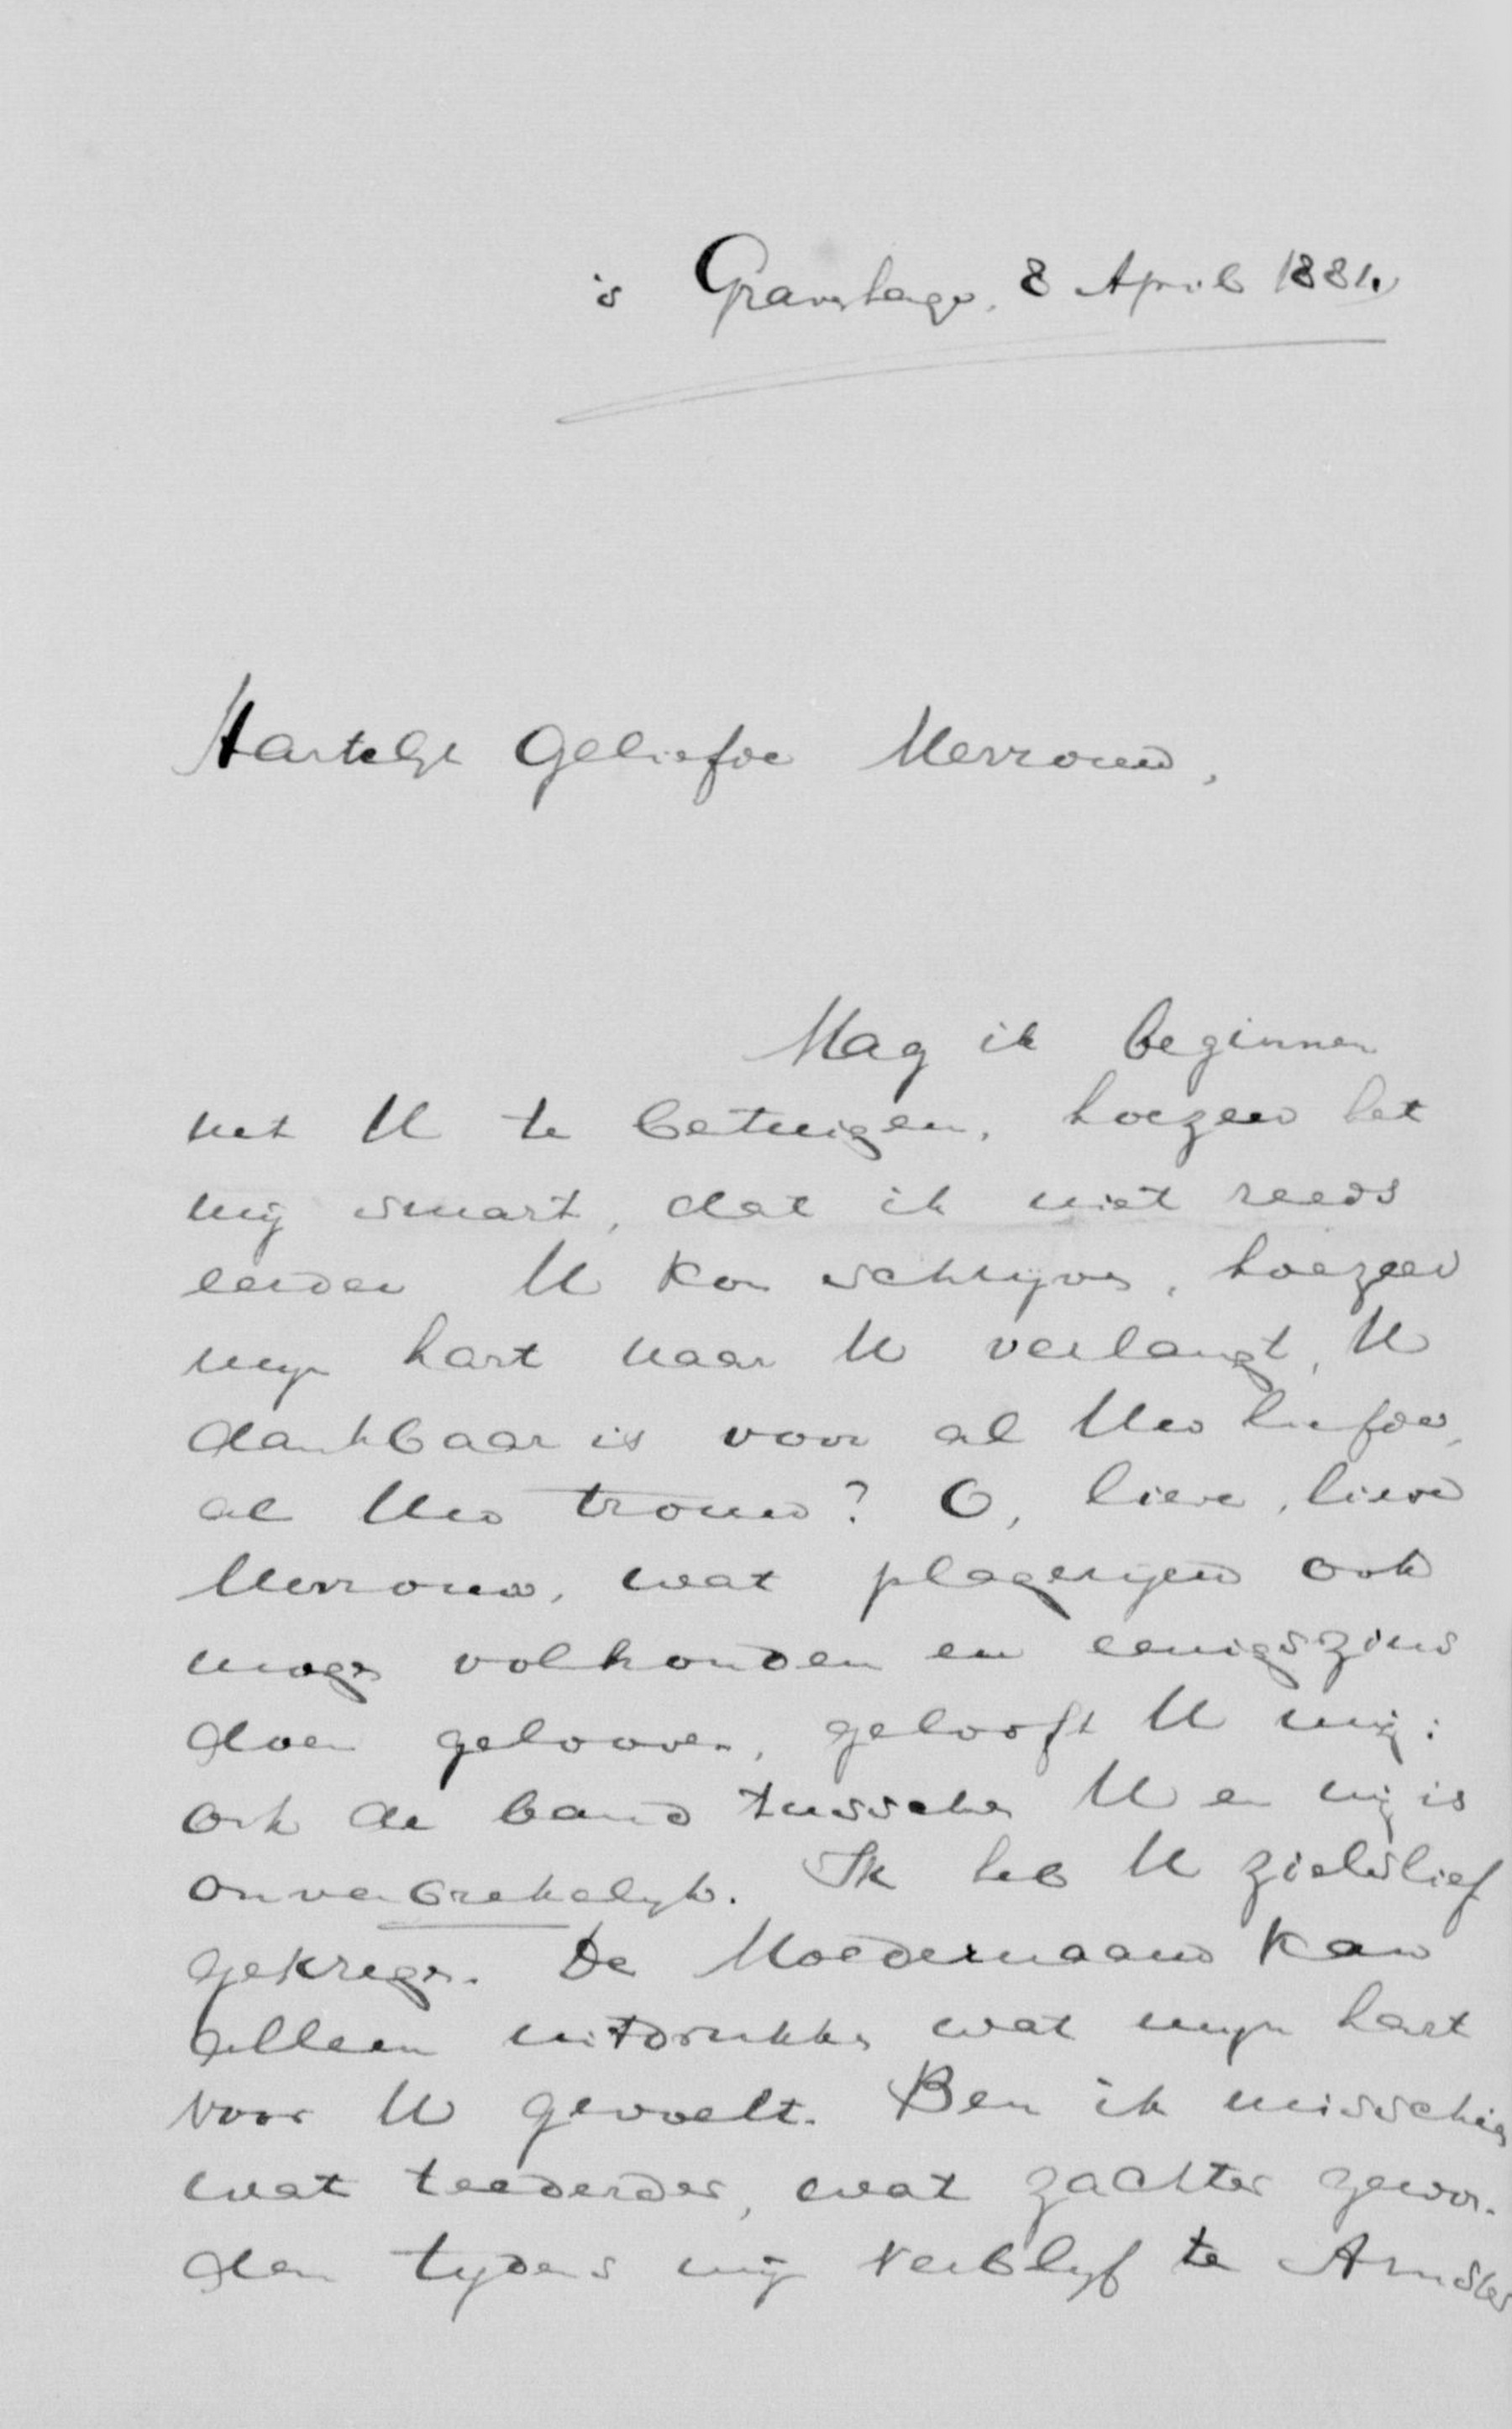 's Gravenhage, 8 April 1881.
Hartelijk Geliefde Mevrouw,
Mag ik beginnen
met U te betuigen, hoezeer het
mij smart, dat ik niet reeds
eerder U kon schrijven, hoezeer
mijn hart naar U verlangt, U
dankbaar is voor al Uw liefde,
al Uw trouw? O, lieve, lieve
Mevrouw, wat plagerijen ook
mogen volhouden en eenigszins
doen gelooven, gelooft U mij:
ook de band tusschen U en mij is
onverbrekelijk. Ik heb U zielslief
gekregen. De Moedernaam kan
alleen uitdrukken wat mijn hart
voor U gevoelt. Ben ik misschien
wat teederder, wat zachter gewor-
den tydens mijn verblyf te Amster